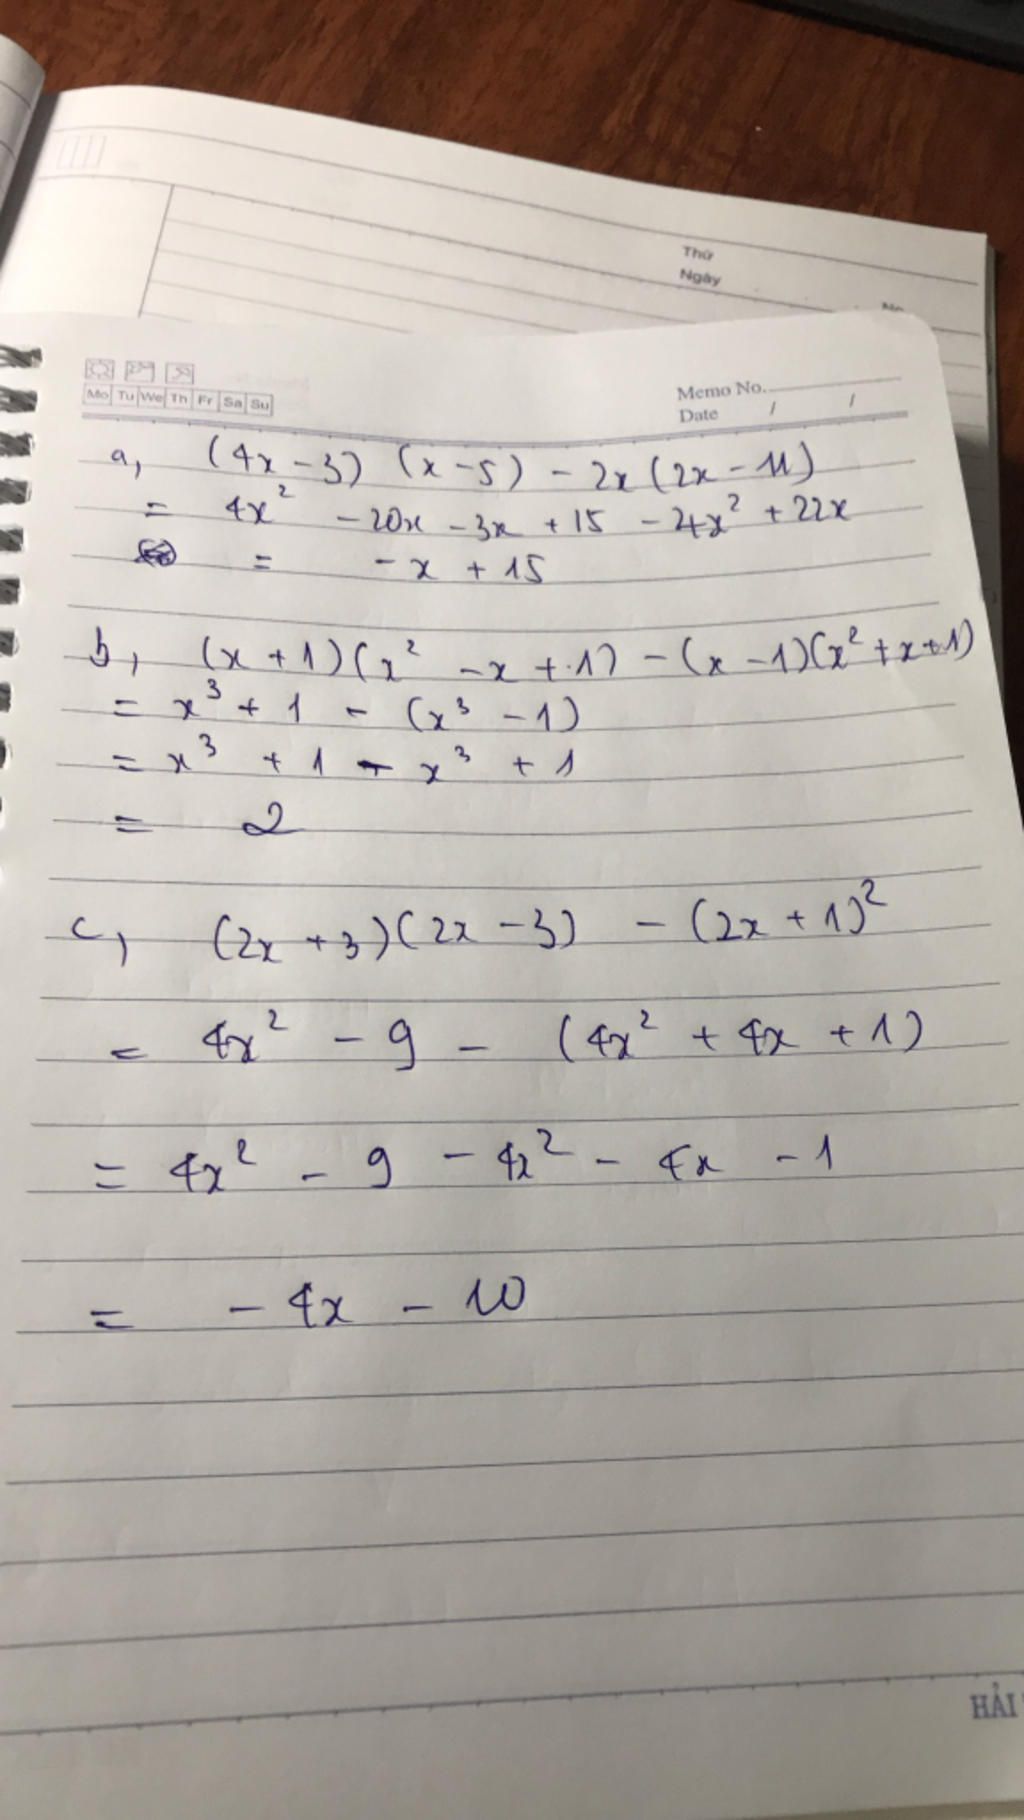 Thứ
Ngày
No
Mo Tu We Th Fr Sa Su
Memo No.
Date / /
a, (4x - 3) (x - 5) - 2x (2x - 11)
= 4x² - 20x - 3x + 15 - 4x² + 22x
= - x + 15
b, (x + 1)(x² - x + 1) - (x - 1)(x² + x + 1)
= x³ + 1 - (x³ - 1)
= x³ + 1 - x³ + 1
= 2
c, (2x + 3)(2x - 3) - (2x + 1)²
= 4x² - 9 - (4x² + 4x + 1)
= 4x² - 9 - 4x² - 4x - 1
= - 4x - 10
HẢI